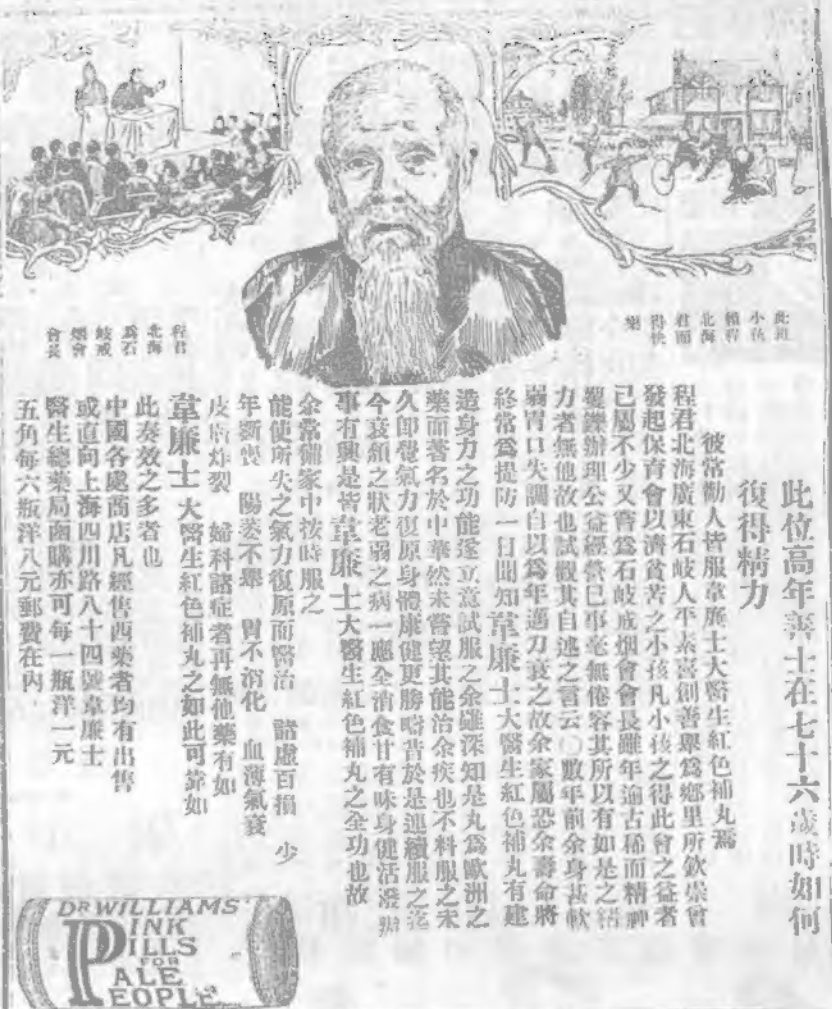 此位高年善士在七十六歲時如何
復得精力
彼常勸人皆服韋廉士大醫生紅色補丸焉
程君北海廣東石岐人平素喜創善舉爲鄉里所欽崇曾
發起保育會以濟貧苦之小孩凡小孩之得此會之益者
已屬不少又嘗爲石岐戒烟會會長雖年逾古稀而精神
矍鑠辦理公益經營巳事毫無倦容其所以有如是之精
力者無他故也試觀其自述之言云〇數年前余身甚軟
弱胃口失調自以爲年邁力衰之故余家屬恐余壽命將
終常爲提防一日聞知韋廉士大醫生紅色補丸有建
造身力之功能遂立意試服之余雖深知是丸爲歐洲之
藥而著名於中華然未嘗望其能治余疾也不料服之未
久即覺氣力復原身體康健更勝疇昔於是連續服之迄
今衰頹之狀老弱之病一應全消食甘有味身健活潑辦
事有興是皆韋廉士大醫生紅色補丸之全功也故
余常備家中按時服之
能使所失之氣力復原而醫治 諸虛百損 少
年斷喪 陽萎不舉 胃不消化 血薄氣衰
皮膚炸裂 婦科諸症者再無他藥有如
韋廉士大醫生紅色補丸之如此可靠如
此奏效之多者也
中國各處商店凡經售西藥者均有出售
或直向上海四川路八十四號韋廉士
醫生總藥局函購亦可每一瓶洋一元
五角每六瓶洋八元郵費在內
此班
小孩
賴程
北海
君而
得快
樂
程君
北海
爲石
岐戒
烟會
會長
DR WILLIAMS'
PINK
PILLS
FOR
PALE
PEOPLE